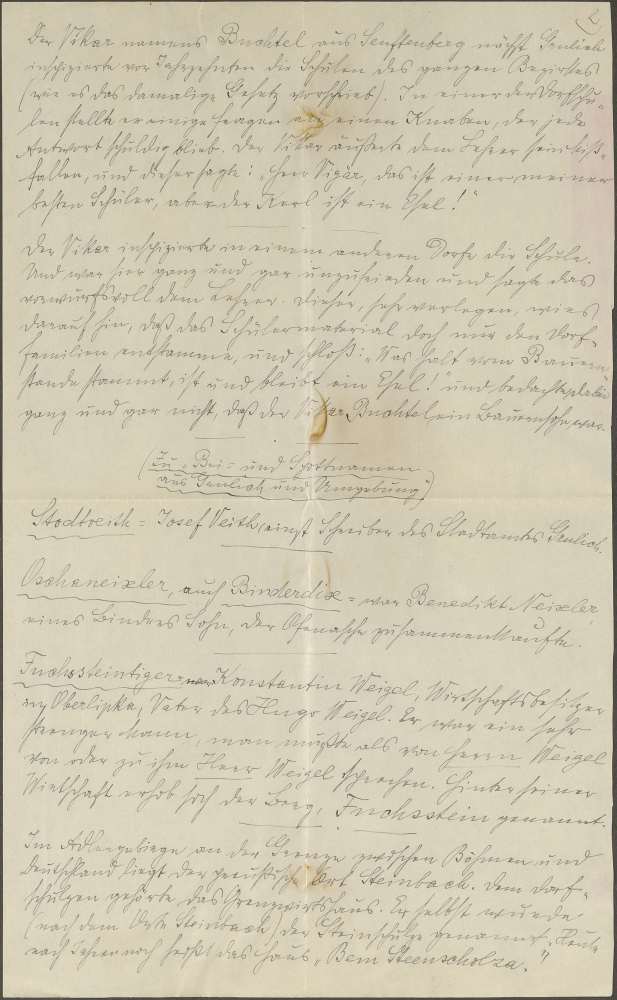 2
Der Vikar namens Buchtel aus Senftenberg nächst Grulich
inspizierte vor Jahrzehnten die Schulen des ganzen Bezirkes
(wie es das damalige Gesetz vorschrieb). In einer der Dorfschu-
len stellte er einige Fragen an einen Knaben, der jede
Antwort schuldig blieb. Der Vikar äußerte dem Lehrer sein Miß-
fallen, und dieser sagte: „Herr Vigar, das ist einer meiner
besten Schüler, aber der Kerl ist ein Esel!"
Der Vikar inspizierte in einem anderen Dorfe die Schule.
Und war hier ganz und gar unzufrieden und sagte das
vorwurfsvoll dem Lehrer. Dieser, sehr verlegen, wies
darauf hin, daß das Schülermaterial doch nur den Dorf-
familien entstamme, und schloß: „Was halt vom Bauern-
stande stammt, ist und bleibt ein Esel!" und bedachte dabei
ganz und gar nicht, daß der Vikar Buchtel ein Bauernsohn war.
(Zu „Bei- und Spottnamen
aus Grulich und Umgebung")
Stodtveith = Josef Veith, einst Schreiber des Stadtamtes Grulich.
Oschaneixler, auch Binderdix = war Benedikt Neixler,
eines Binders Sohn, der Ofenasche zusammenkaufte.
Fuchssteintiger = war Konstantin Weigel, Wirtschaftsbesitzer
in Oberlipka, Vater des Hugo Weigel. Er war ein sehr
strenger Mann, man mußte als von Herrn Weigel
von oder zu ihm Herr Weigel sprechen. Hinter seiner
Wirtschaft erhob sich der Berg, Fuchsstein genannt.
Im Adlergebirge an der Grenze zwischen Böhmen und
Deutschland liegt der preußische Ort Steinbach. Dem Dorf-
schulzen gehörte das Grenzwirtshaus. Er selbst wurde
(nach dem Orte Steinbach) der Steinschulze genannt. Heute
nach Jahren noch heißt das Haus „Bem Steenscholza."